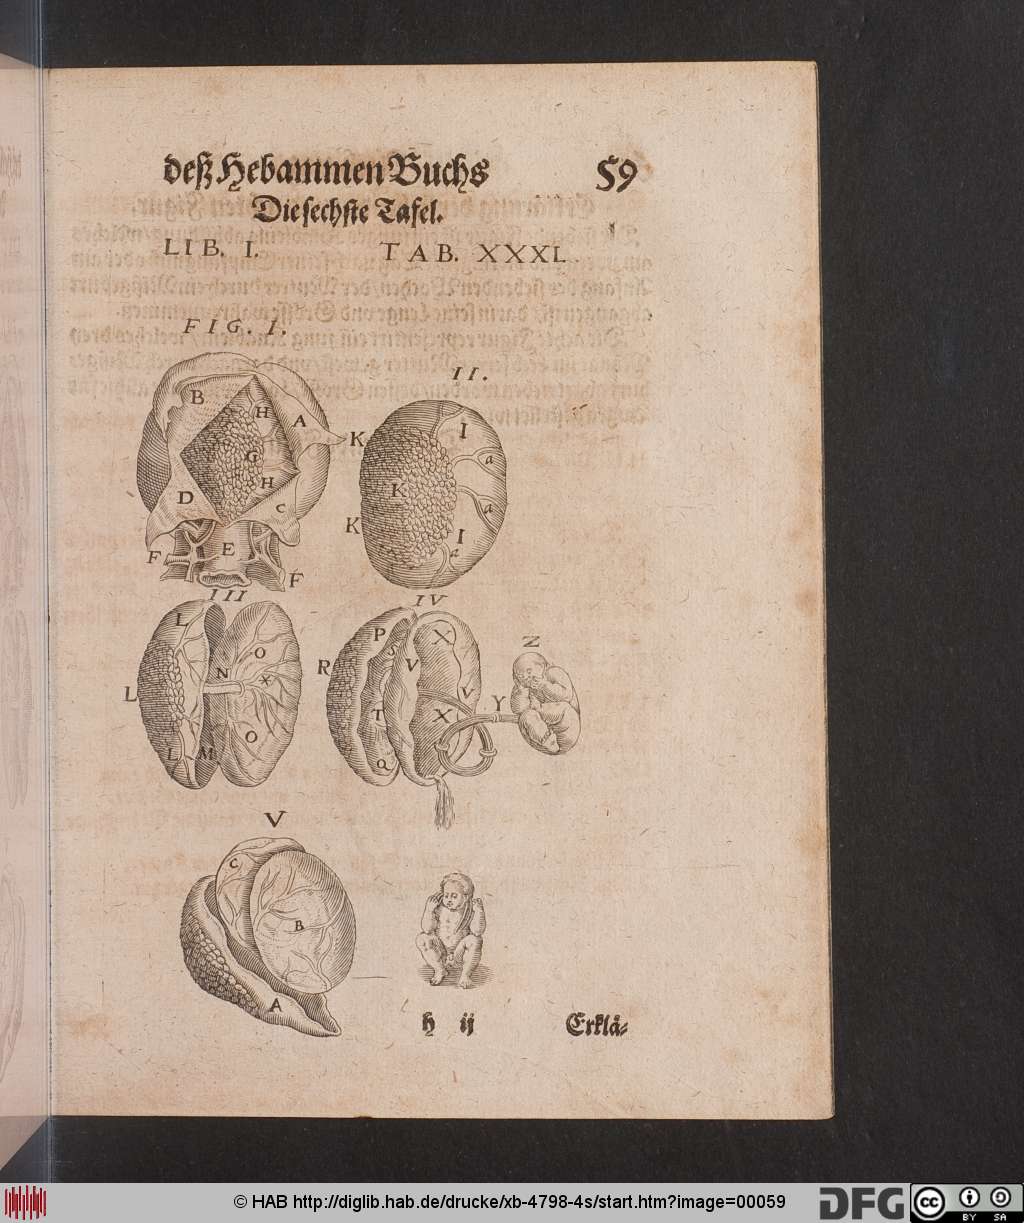 deß Hebammen Buchs 59
Die sechste Tafel.
LIB. I. TAB. XXXI.
FIG. I.
II.
B
H
A
G
H
D
C
E
F
F
K
I
a
K
a
K
I
a
III
L
O
N
x
L
O
L
M
IV
P
X
S
V
R
V
T
X
Y
Q
Z
V
C
B
A
h ij Erklå⸗
© HAB http://diglib.hab.de/drucke/xb-4798-4s/start.htm?image=00059
DFG
cc
BY SA